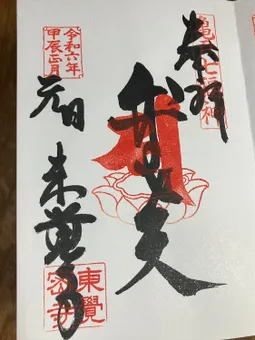 亀戸七福神
奉拝
弁財天
令和六年
甲辰正月
元日
東覺寺
東覺
密寺